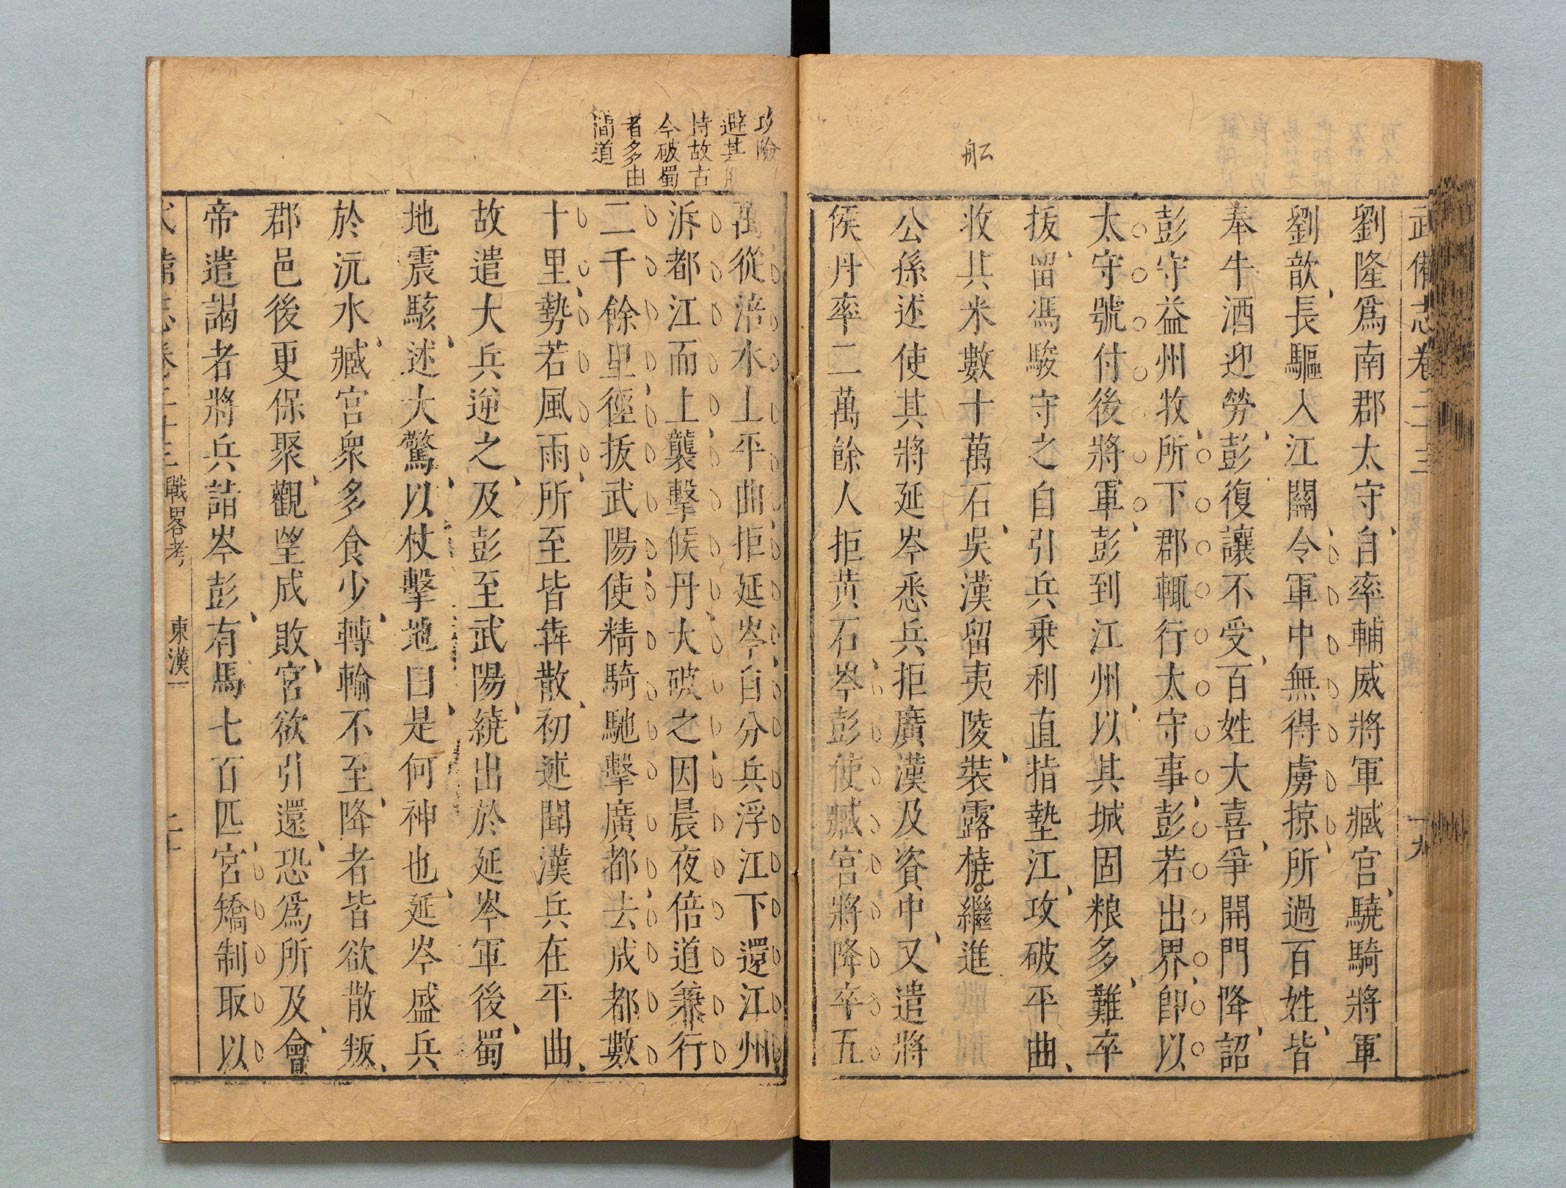 武備志卷二十三
十九
劉隆爲南郡太守自率輔威將軍臧宮驍騎將軍
劉歆長驅入江關令軍中無得虜掠所過百姓皆
奉牛酒迎勞彭復讓不受百姓大喜爭開門降詔
彭守益州牧所下郡輒行太守事彭若出界卽以
太守號付後將軍彭到江州以其城固粮多難卒
拔留馮駿守之自引兵乗利直指墊江攻破平曲
收其米數十萬石吳漢留夷陵裝露橈繼進
舩
公孫述使其將延岑悉兵拒廣漢及資中又遣將
侯丹率二萬餘人拒黃石岑彭使臧宮將降卒五
攻險
避其所
恃故古
今破蜀
者多由
間道
萬從涪水上平曲拒延岑自分兵浮江下還江州
泝都江而上襲擊侯丹大破之因晨夜倍道兼行
二千餘里徑拔武陽使精騎馳擊廣都去成都數
十里勢若風雨所至皆犇散初述聞漢兵在平曲
故遣大兵逆之及彭至武陽繞出於延岑軍後蜀
地震駭述大驚以杖擊地曰是何神也延岑盛兵
於沅水臧宮衆多食少轉輸不至降者皆欲散叛
郡邑後更保聚觀望成敗宮欲引還恐爲所及會
帝遣謁者將兵詣岑彭有馬七百匹宮矯制取以
武備志卷二十三 戰畧考 東漢一 二十